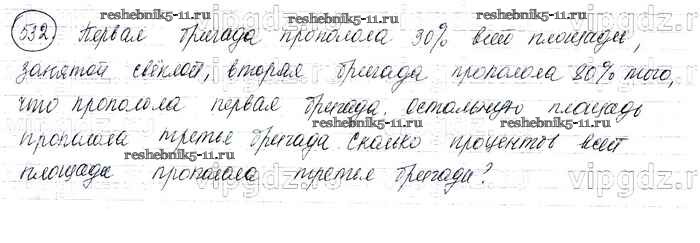 reshebnik5-11.ru reshebnik5-11.ru
532. Первая бригада прополола 30% всей площади,
занятой свёклой, вторая бригада прополола 80% того,
vipgdz.ru vipgdz.ru
что прополола первая бригада. Остальную площадь
reshebnik5-11.ru
прополола третья бригада. Сколько процентов всей
reshebnik5-11.ru
площади прополола третья бригада?
vipgdz.ru vipgdz.r